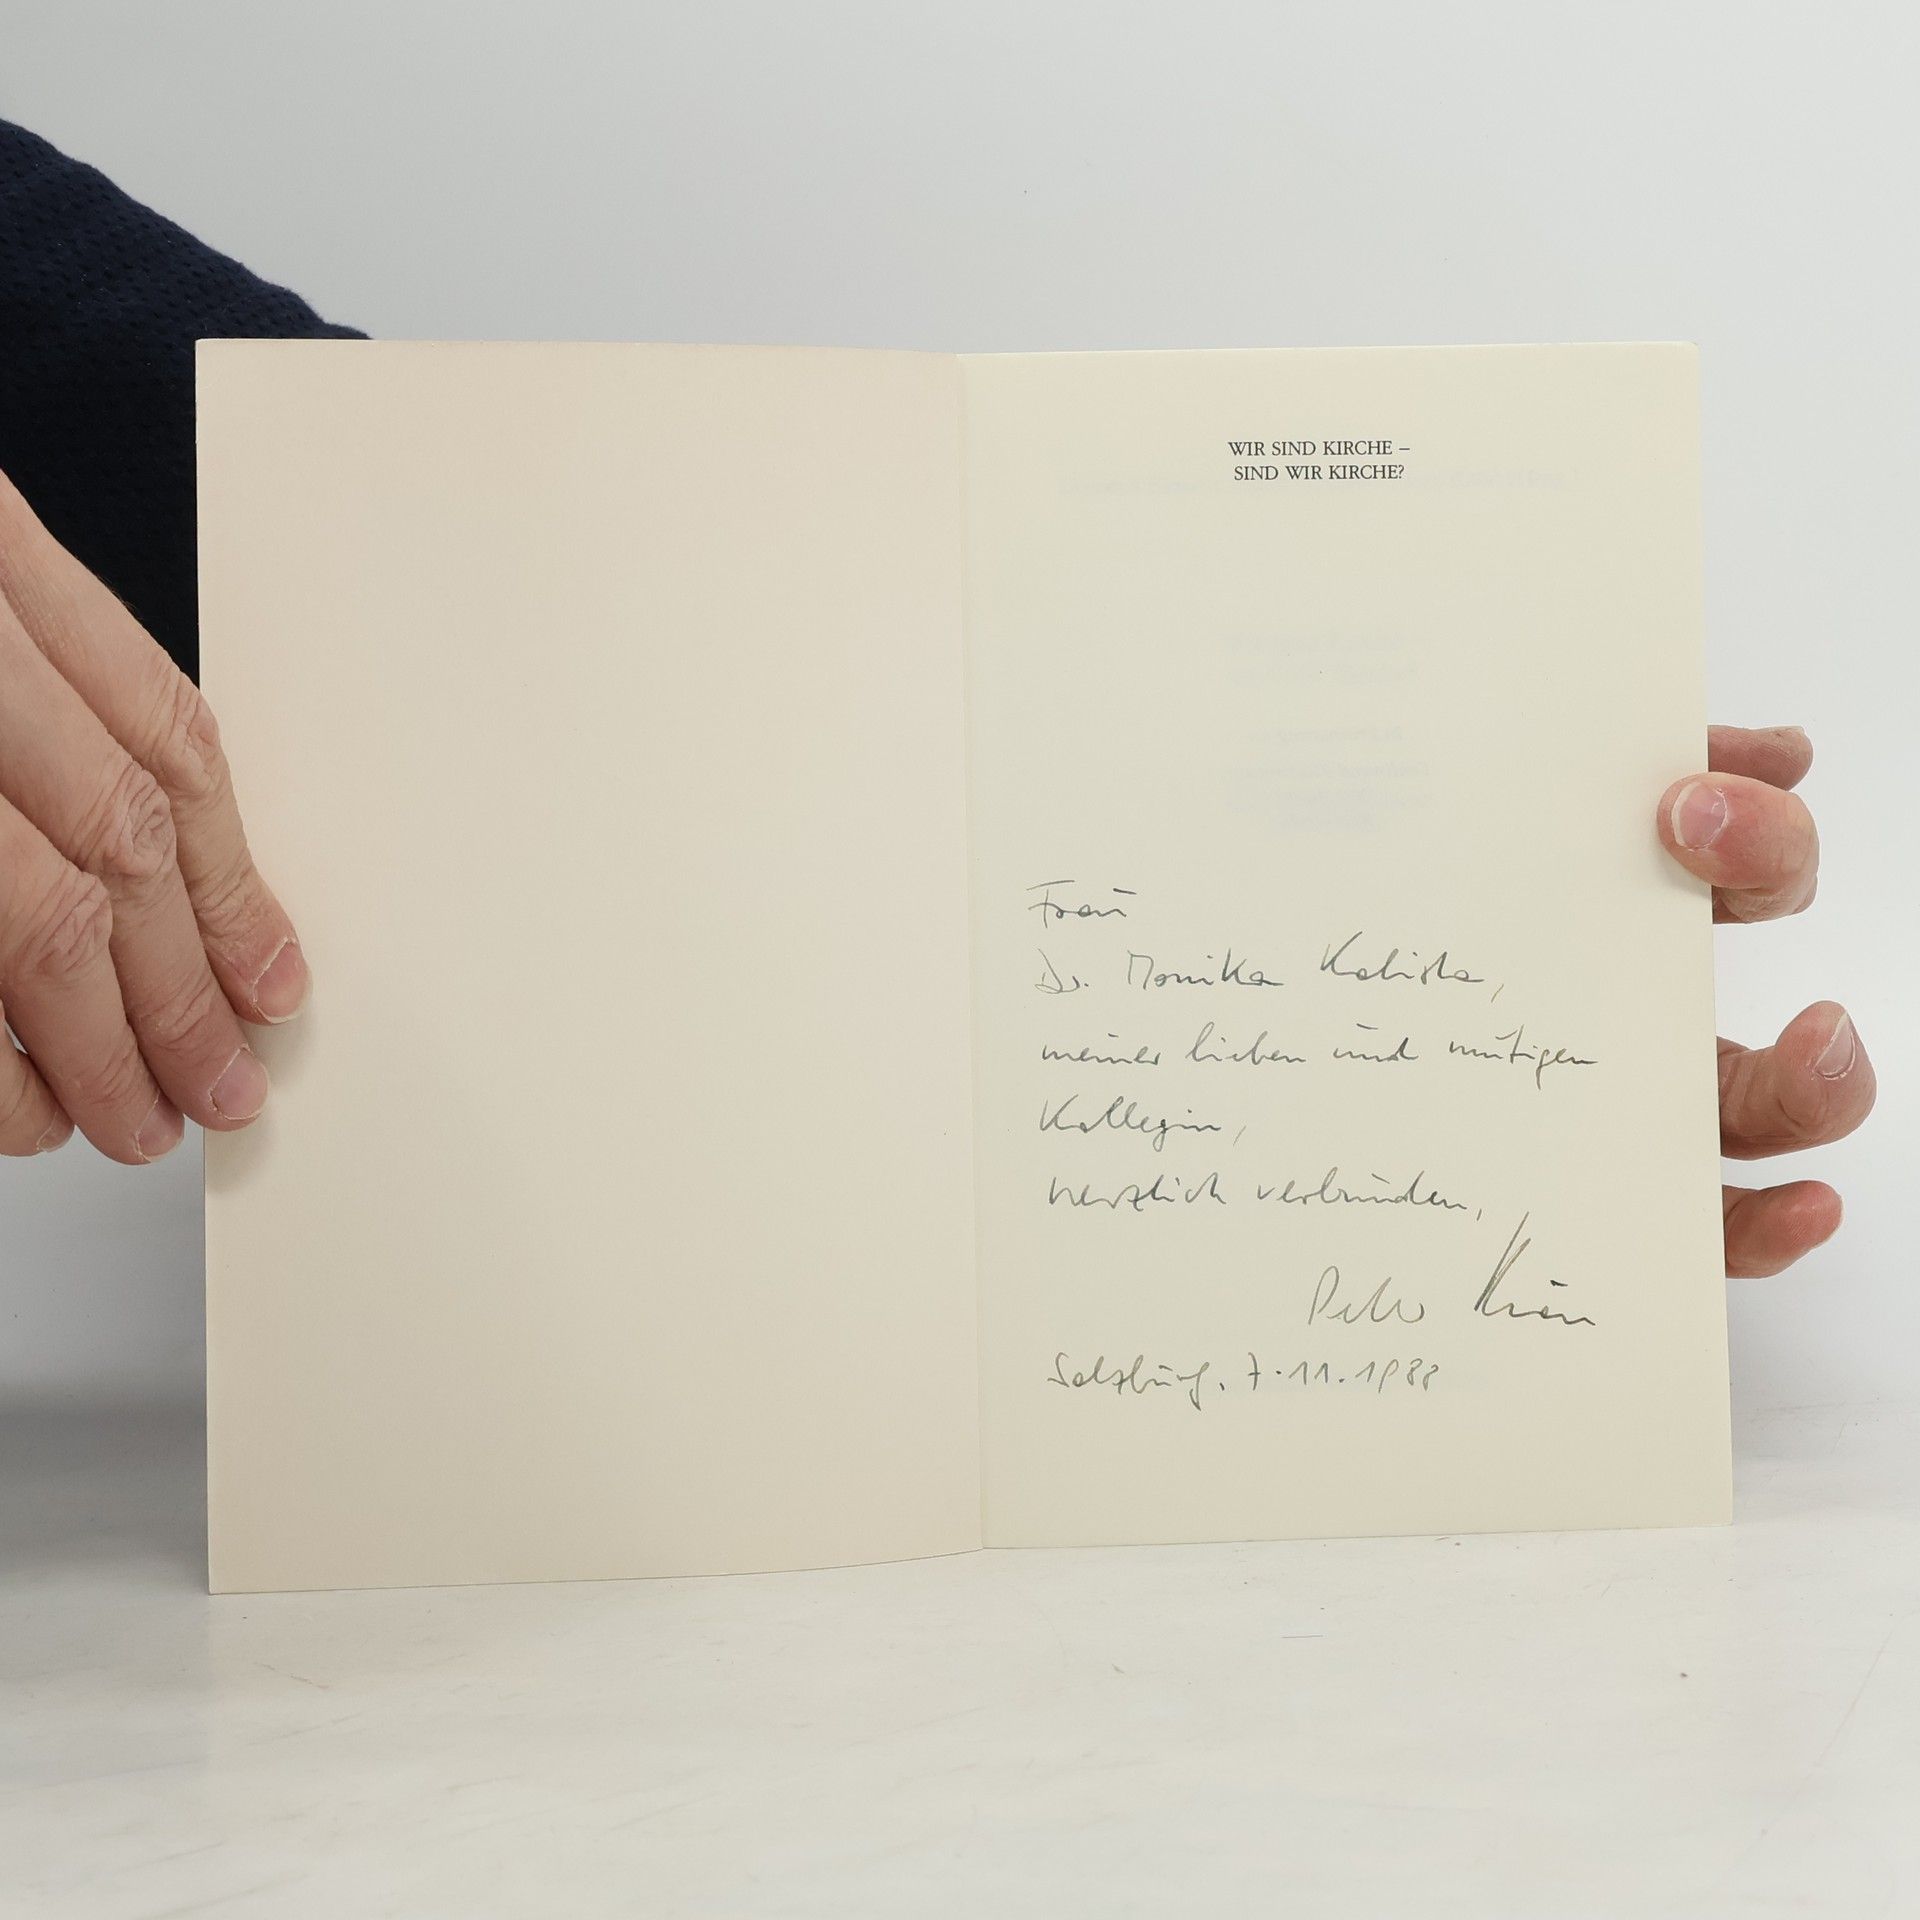 WIR SIND KIRCHE –
SIND WIR KIRCHE?
Frau
Dr. Monika Kalista,
meiner lieben und mutigen
Kollegin,
herzlich verbunden,
Peter Krön
Salzburg, 7.11.1988